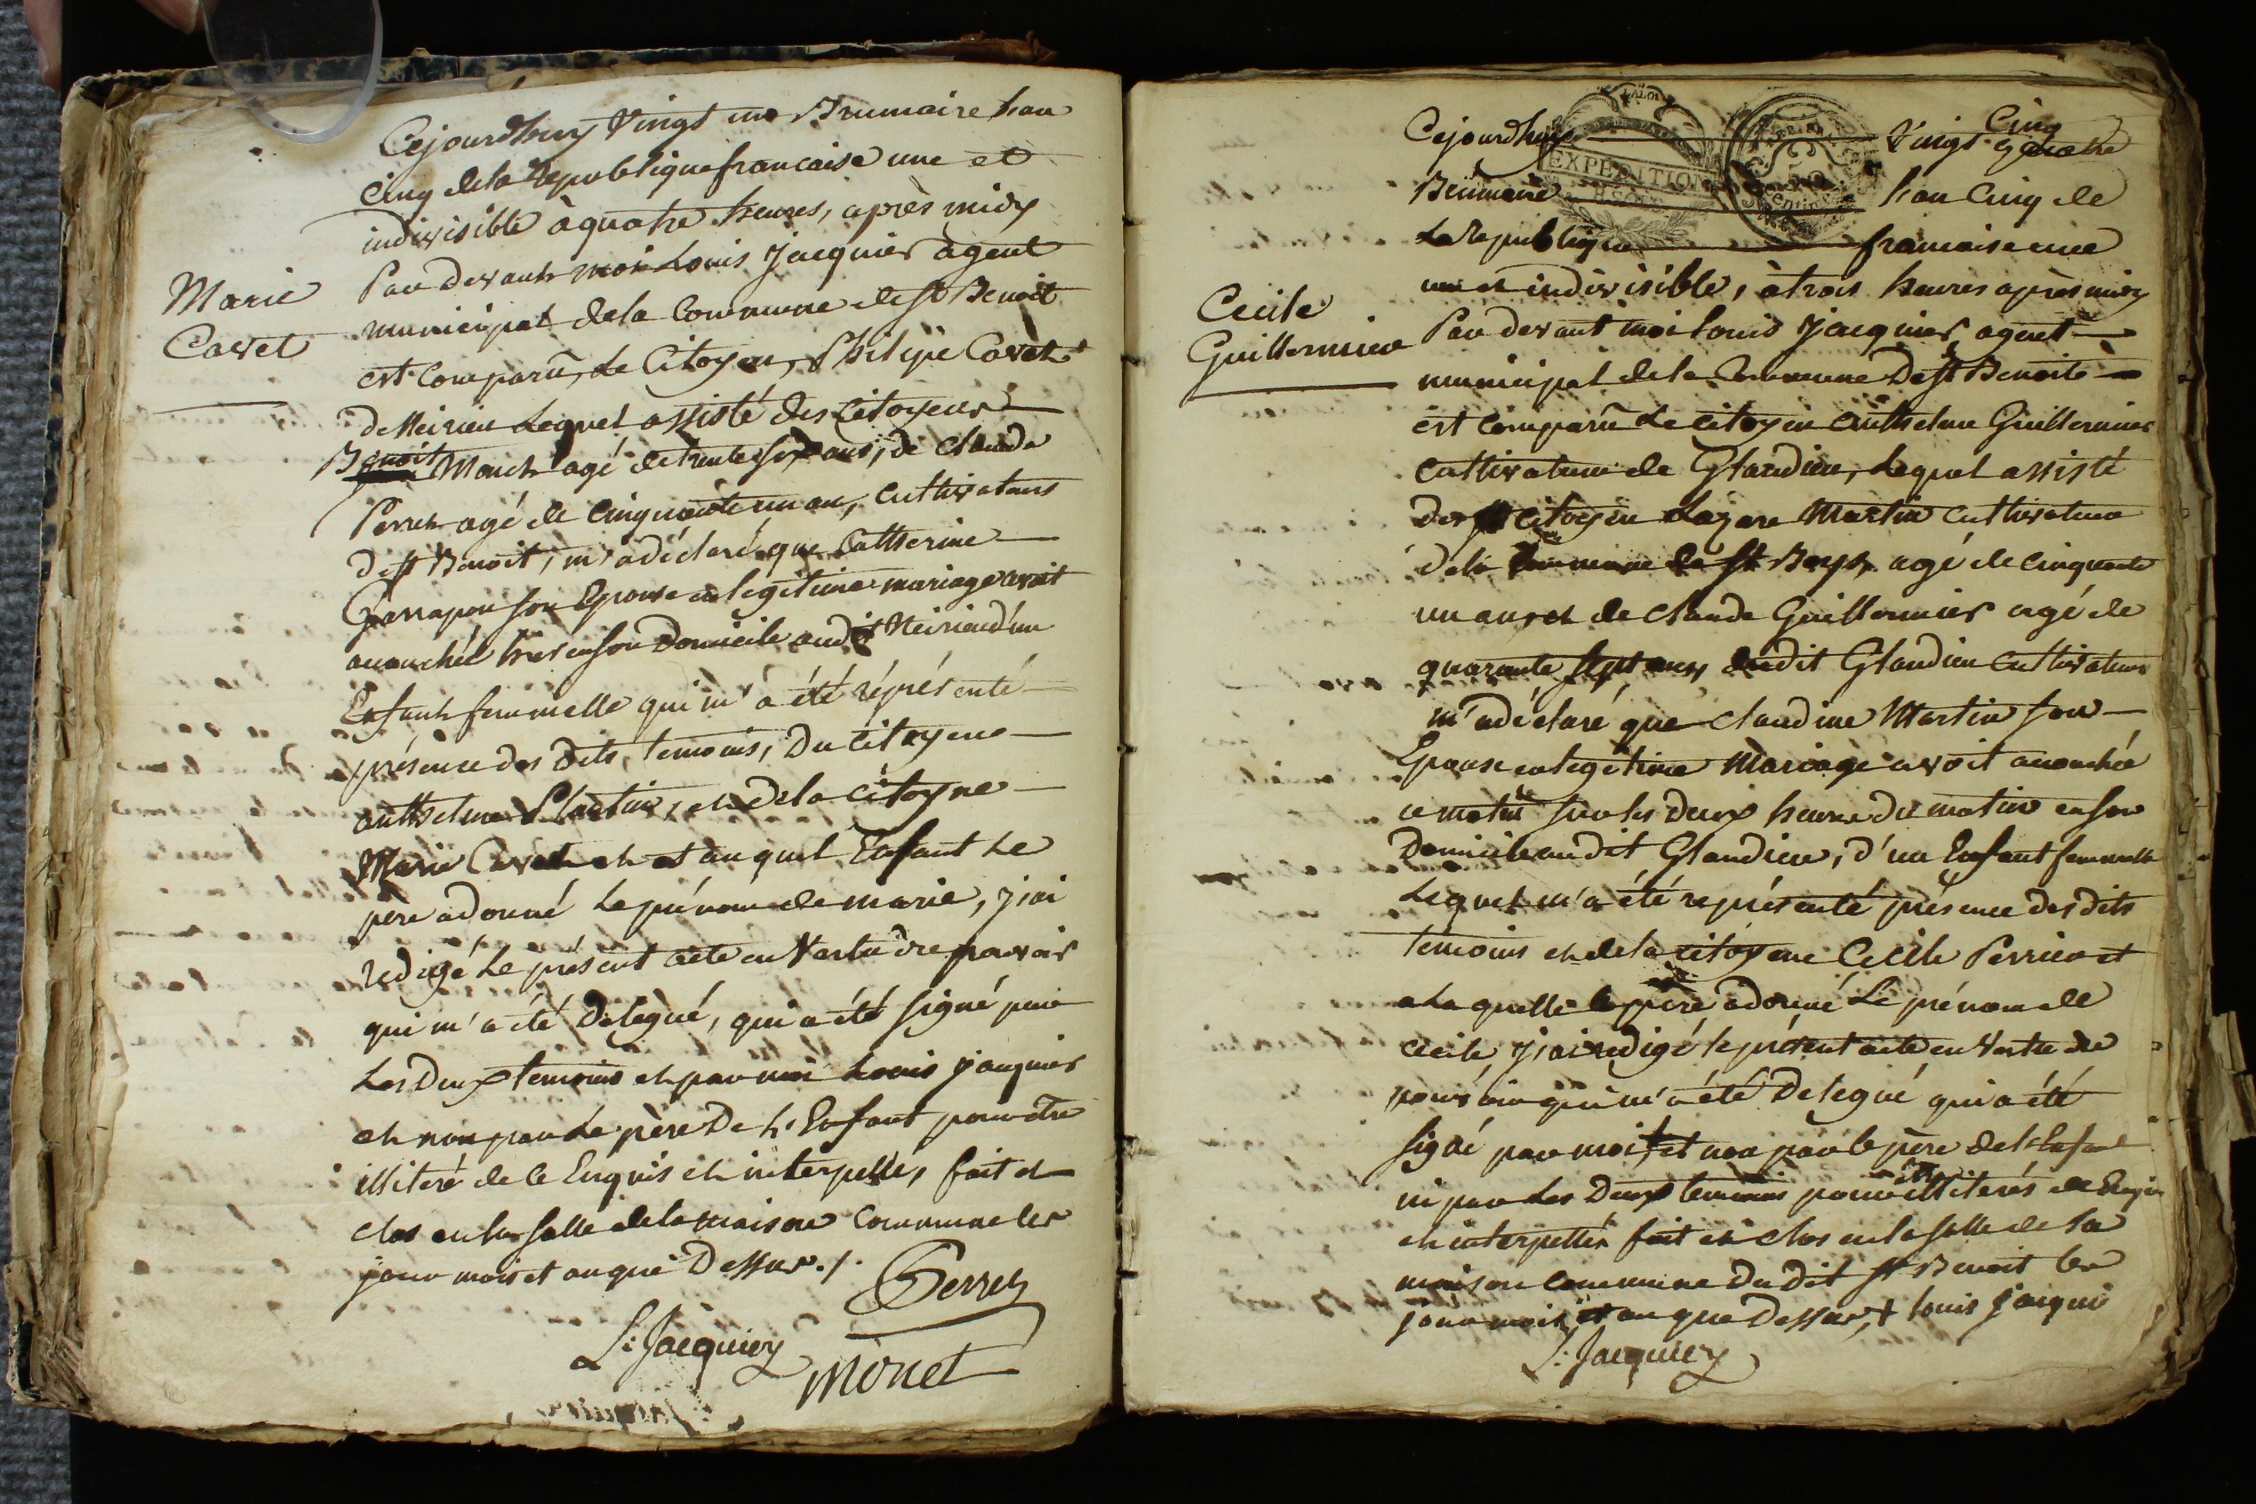 Cejourdhuy Vingt un Brumaire han
Cinq dela Republique francaise une et
indivisible à quatre heures, après midy
Par devant moi Louis Jacquier agent
municipal dela Commune de st Benoit
est Comparu, Le Citoyen, Philipe Cavet
Marie
Cavet
de Meirieu Lequel assisté des Citoyens
Benoit Monet agé de trente six ans, de Claude
Perret agé de Cinquante un an, Cultivateurs
de st Benoit, m'a déclaré que Catherine
son Epouse en legitime mariage avoit
accouchée hier en son Domicile audit Meirieu d'un
Enfant femmelle qui m'a été réprésenté
présence des dits, temoins, Du citoyene
anthelme Martin, et dela citoyne
Marie Cavet et auquel Enfant Le
pere a donné Le prénom de marie, j'ai
redigé Le présent acte en Vertu dre pouvoir
qui m'a été Delegué, qui a été signé par
Les Deux temoins et par moi Louis jacquier
et non par Le père De L'Enfant pour être
illiteré de ce Enquis et interpellé, fait et
clos en la salle de la maison Commune les
jour mois et an que Dessus ./.
Perret
L: Jacquier
Monet
Cejourdhuy Vingt Cinq quatre
EXPEDITION
Brumaire han Cinq de
La Republique francaise une
un et indivisible, à trois heures après midy
Cecile
Guillermier
Par devant moi Louis Jacquier, agent
municipal dela Commune De st Benoit
est Comparu Le citoyen anthelme Guillermier
cultivateur de Glandieu, Lequel assisté
des citoyen Lazare Martin cultivateur
dela Commune de st Boys agé de cinquante
un ans et de claude Guillermier agé de
quarante sept ans dudit Glandieu cultivateur
m'a déclaré que claudine Martin son
Epouse en legitime Mariage avoit accouchée
ce matin sur les Deux heures du matin en son
Domicile audit Glandieu, d'un Enfant femmelle
Lequel m'a été représenté présence des dits
temoins et dela citoyene Cecile Perrier et
a Laquelle le père a donné Le prénom de
cecile j'ai redigé le présent acte en Vertu dre
pouvoir qui m'a été Delegué qui a été
signé par moi et non par le père de L'Enfant
ni par Les Deux temoins pour être illiterés de Enquis
et interpellés fait et clos en la salle de la
maison commune Du dit st Benoit les
jour mois et an que Dessus, + Louis jacquie
L: Jacquier